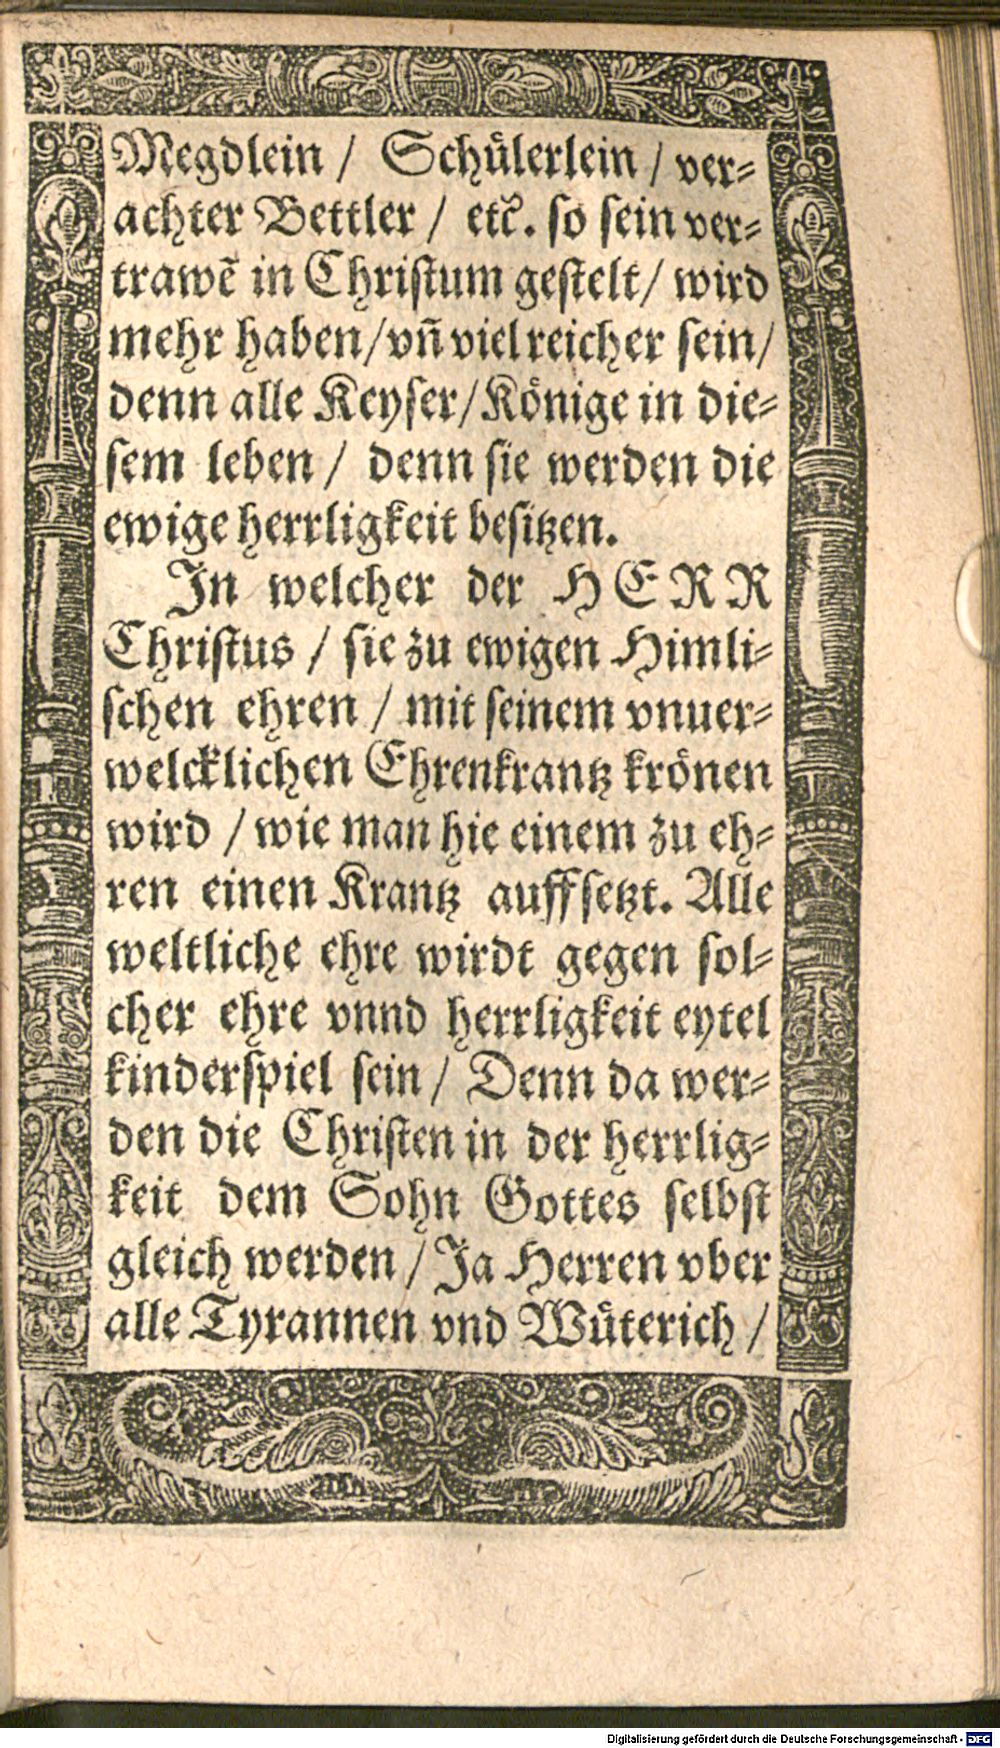 Megdlein / Schuͤlerlein / ver⸗
achter Bettler / etc̃. so sein ver⸗
trawẽ in Christum gestelt / wird
mehr haben / vñ viel reicher sein /
denn alle Keyser / Koͤnige in die⸗
sem leben / denn sie werden die
ewige herrligkeit besitzen.
In welcher der HERR
Christus / sie zu ewigen Himli⸗
schen ehren / mit seinem vnuer⸗
welcklichen Ehrenkrantz kroͤnen
wird / wie man hie einem zu eh⸗
ren einen Krantz auffsetzt. Alle
weltliche ehre wirdt gegen sol⸗
cher ehre vnnd herrligkeit eytel
kinderspiel sein / Denn da wer⸗
den die Christen in der herrlig⸗
keit dem Sohn Gottes selbst
gleich werden / Ja Herren vber
alle Tyrannen vnd Wuͤterich /
Digitalisierung gefördert durch die Deutsche Forschungsgemeinschaft - DFG